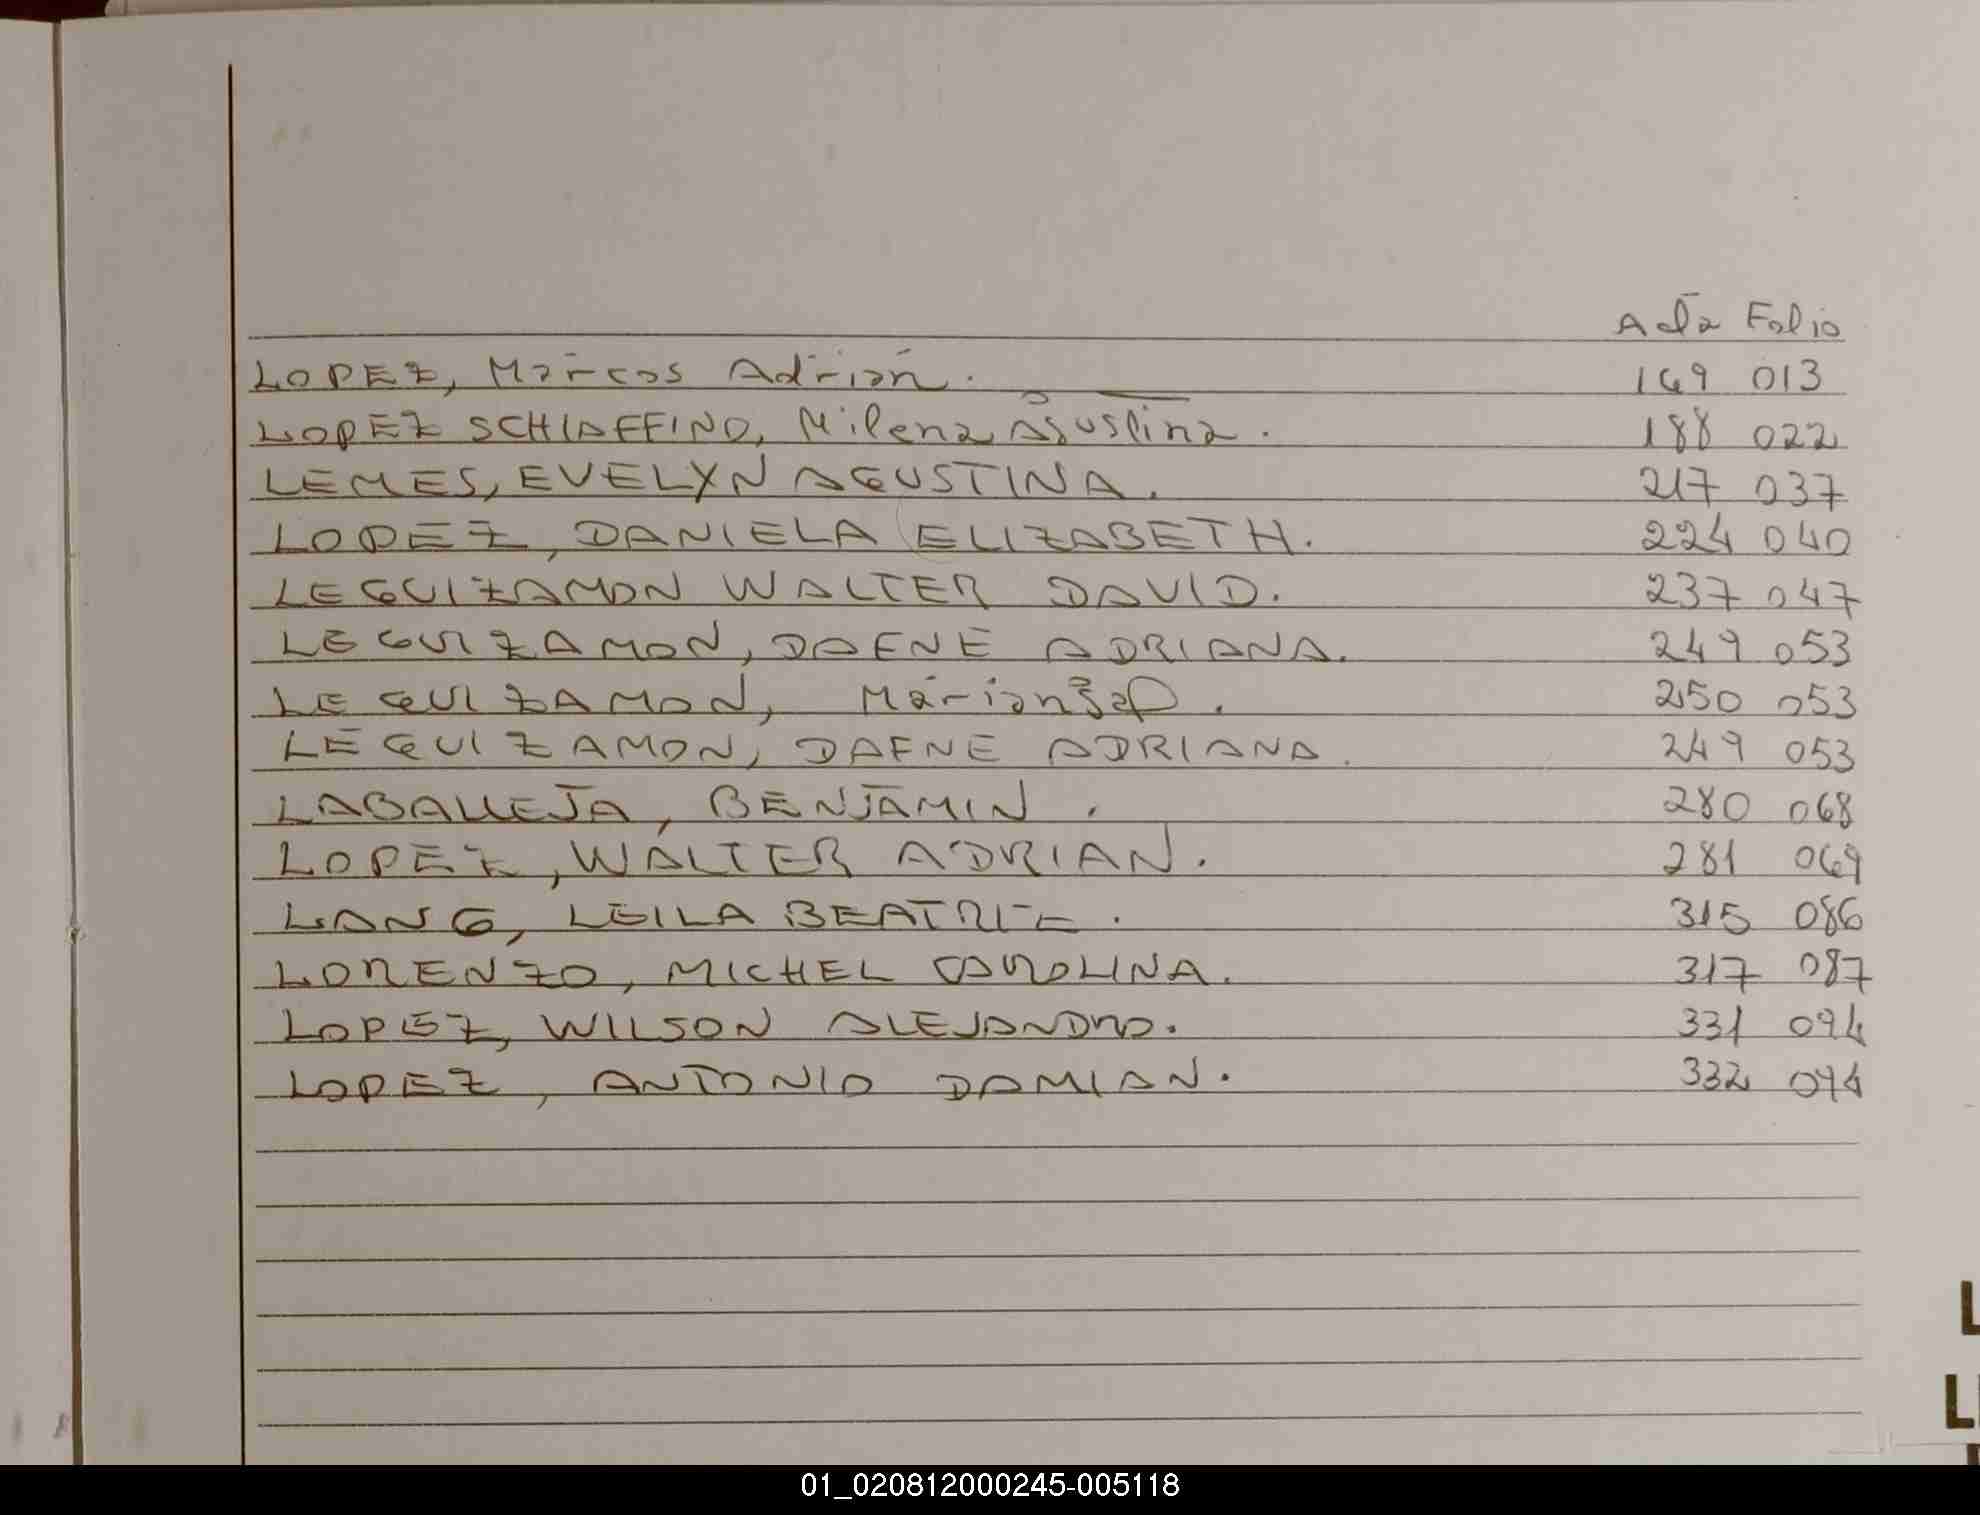 Acta Folio
LOPEZ, Marcos Adrián. 169 013
LOPEZ SCHIAFFINO, Milena Agustina. 188 022
LEMES, EVELYN AGUSTINA. 217 037
LOPEZ, DANIELA ELIZABETH. 224 040
LEGUIZAMON WALTER DAVID. 237 047
LEGUIZAMON, DAFNE ADRIANA. 249 053
LEGUIZAMON, 250 053
LEGUIZAMON, DAFNE ADRIANA. 249 053
LABALLEJA, BENJAMIN. 280 068
LOPEZ, WALTER ADRIAN. 281 069
LANG, LEILA BEATRIZ. 315 086
LORENZO, MICHEL CAROLINA. 317 087
LOPEZ, WILSON ALEJANDRO. 331 094
LOPEZ, ANTONIO DAMIAN. 332 094
L
L
01_020812000245-005118